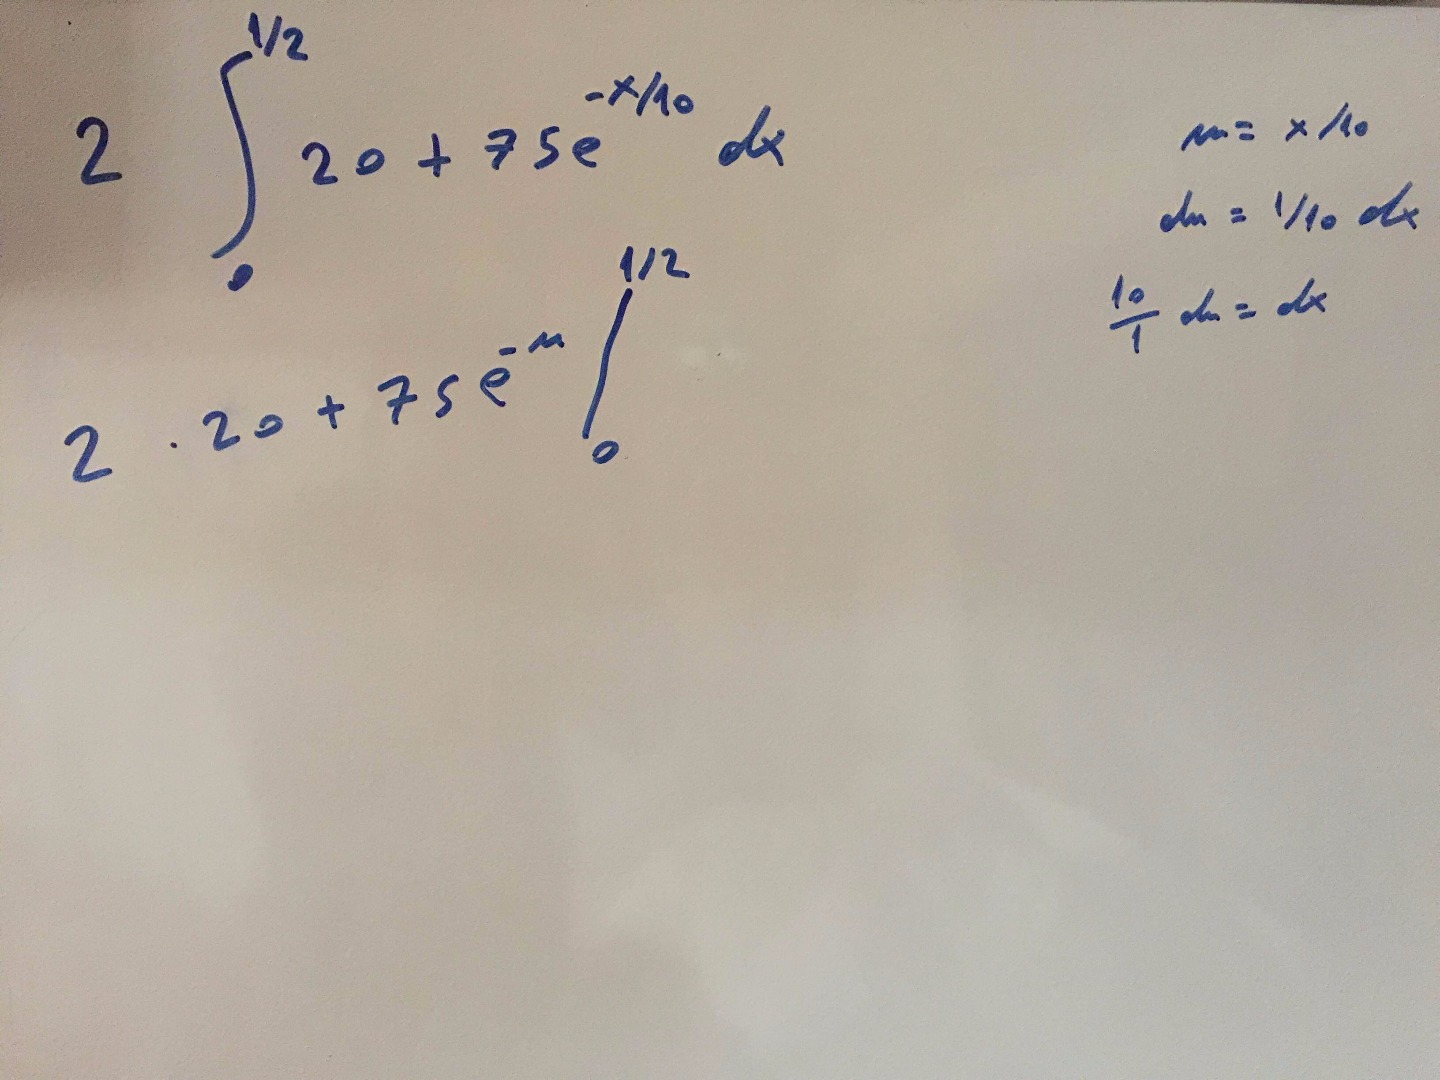 2 ∫₀^{1/2} 20 + 75e^{-x/10} dx
u = x/10
du = 1/10 dx
10/1 du = dx
2 · 20 + 75e^{-u} |₀^{1/2}